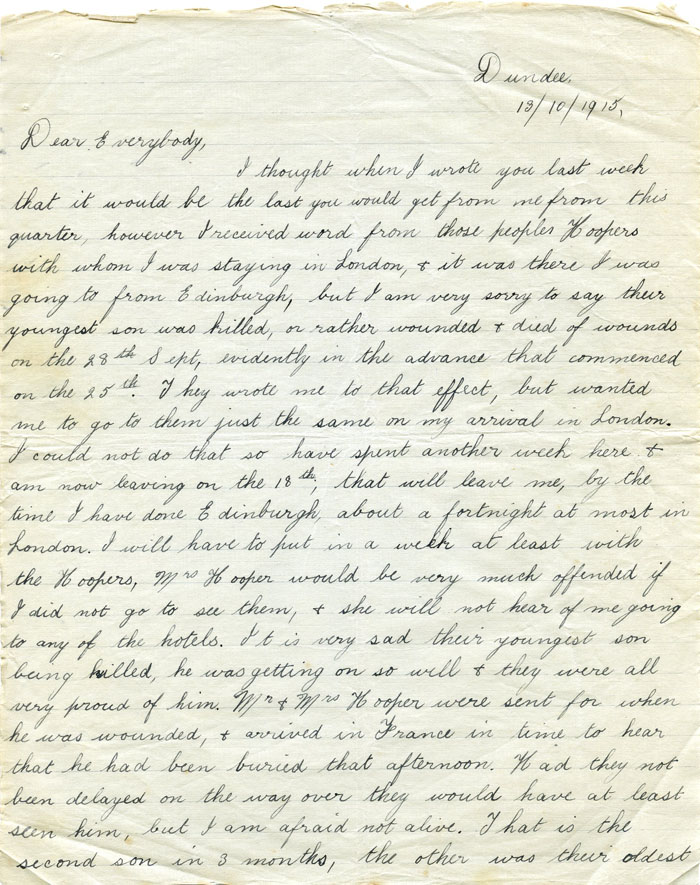 Dundee.
13/10/1915,
Dear Everybody,
I thought when I wrote you last week
that it would be the last you would get from me from this
quarter, however I received word from those peoples Hoopers
with whom I was staying in London, & it was there I was
going to from Edinburgh, but I am very sorry to say their
youngest son was killed, or rather wounded & died of wounds
on the 28th Sept, evidently in the advance that commenced
on the 25th. They wrote me to that effect, but wanted
me to go to them just the same on my arrival in London.
I could not do that so have spent another week here &
am now leaving on the 18th, that will leave me, by the
time I have done Edinburgh, about a fortnight at most in
London. I will have to put in a week at least with
the Hoopers, Mrs Hooper would be very much offended if
I did not go to see them, & she will not hear of me going
to any of the hotels. It is very sad their youngest son
being killed, he was getting on so will & they were all
very proud of him. Mr & Mrs Hooper were sent for when
he was wounded, & arrived in France in time to hear
that he had been buried that afternoon. Had they not
been delayed on the way over they would have at least
seen him, but I am afraid not alive. That is the
second son in 3 months, the other was their oldest